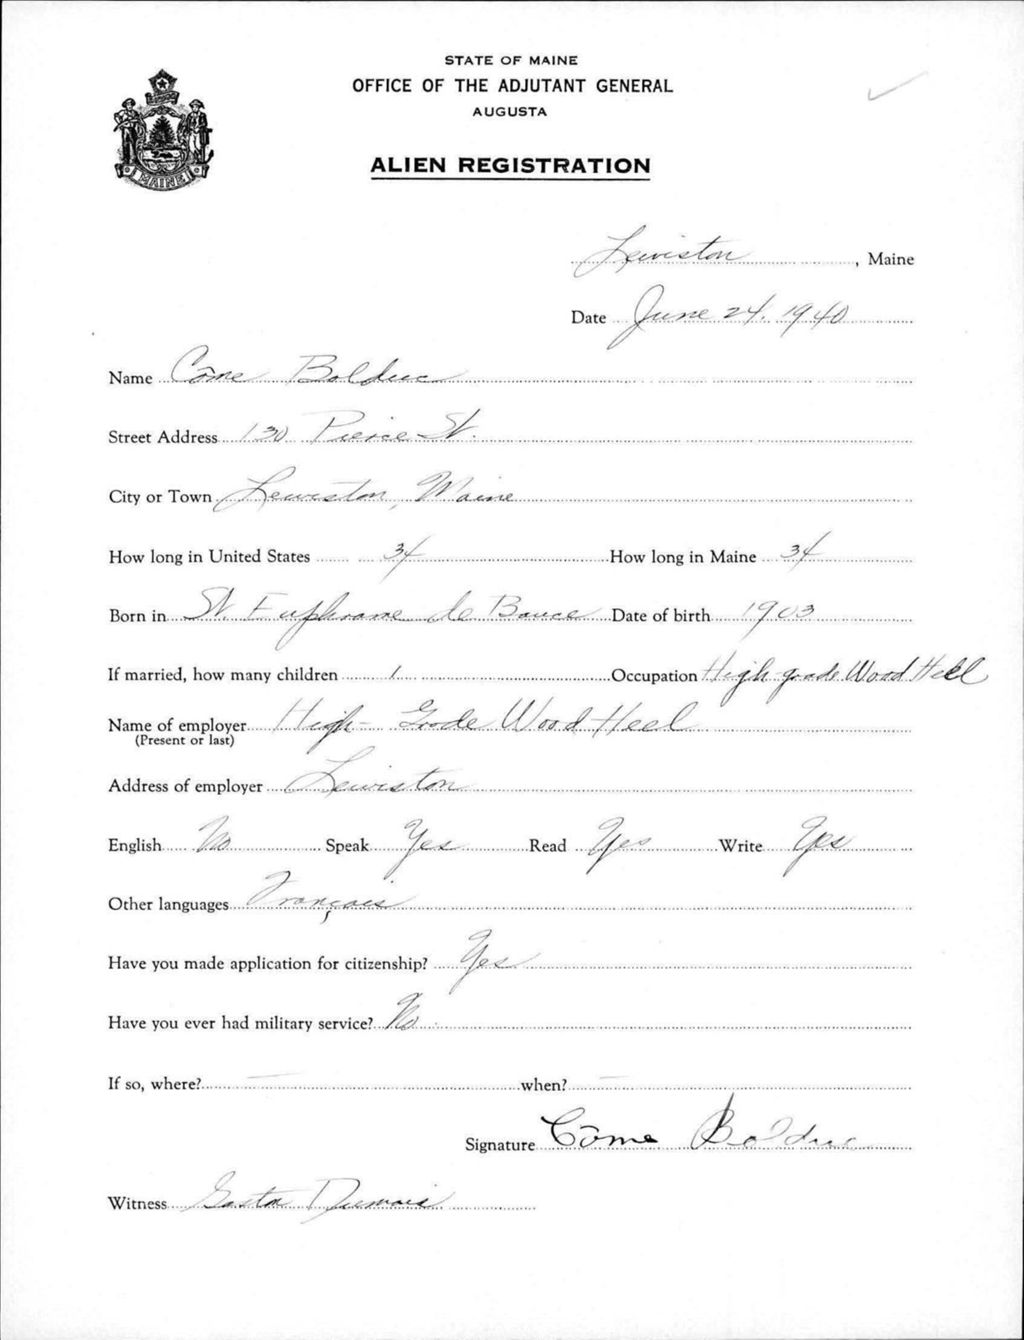 STATE OF MAINE
OFFICE OF THE ADJUTANT GENERAL
AUGUSTA
MAINE
ALIEN REGISTRATION
Lewiston, Maine
Date June 24. 1940
Name Côme Bolduc
Street Address 130 Pierce St.
City or Town Lewiston, Maine
How long in United States 34 How long in Maine 34
Born in St. Euphrane de Bauce Date of birth 1903
If married, how many children 1 Occupation High grade Wood Heel
Name of employer High-Grade Wood Heel
(Present or last)
Address of employer Lewiston
English No Speak Yes Read Yes Write Yes
Other languages Français
Have you made application for citizenship? Yes
Have you ever had military service? No
If so, where? — when? —
Signature Côme Bolduc
Witness Gaston Dumais